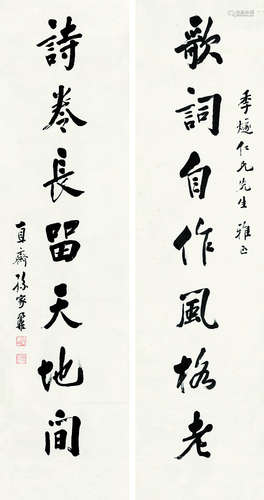 歌詞自作風格老
季燧仁兄先生 雅正
詩卷長留天地間
直齋孫家鼐